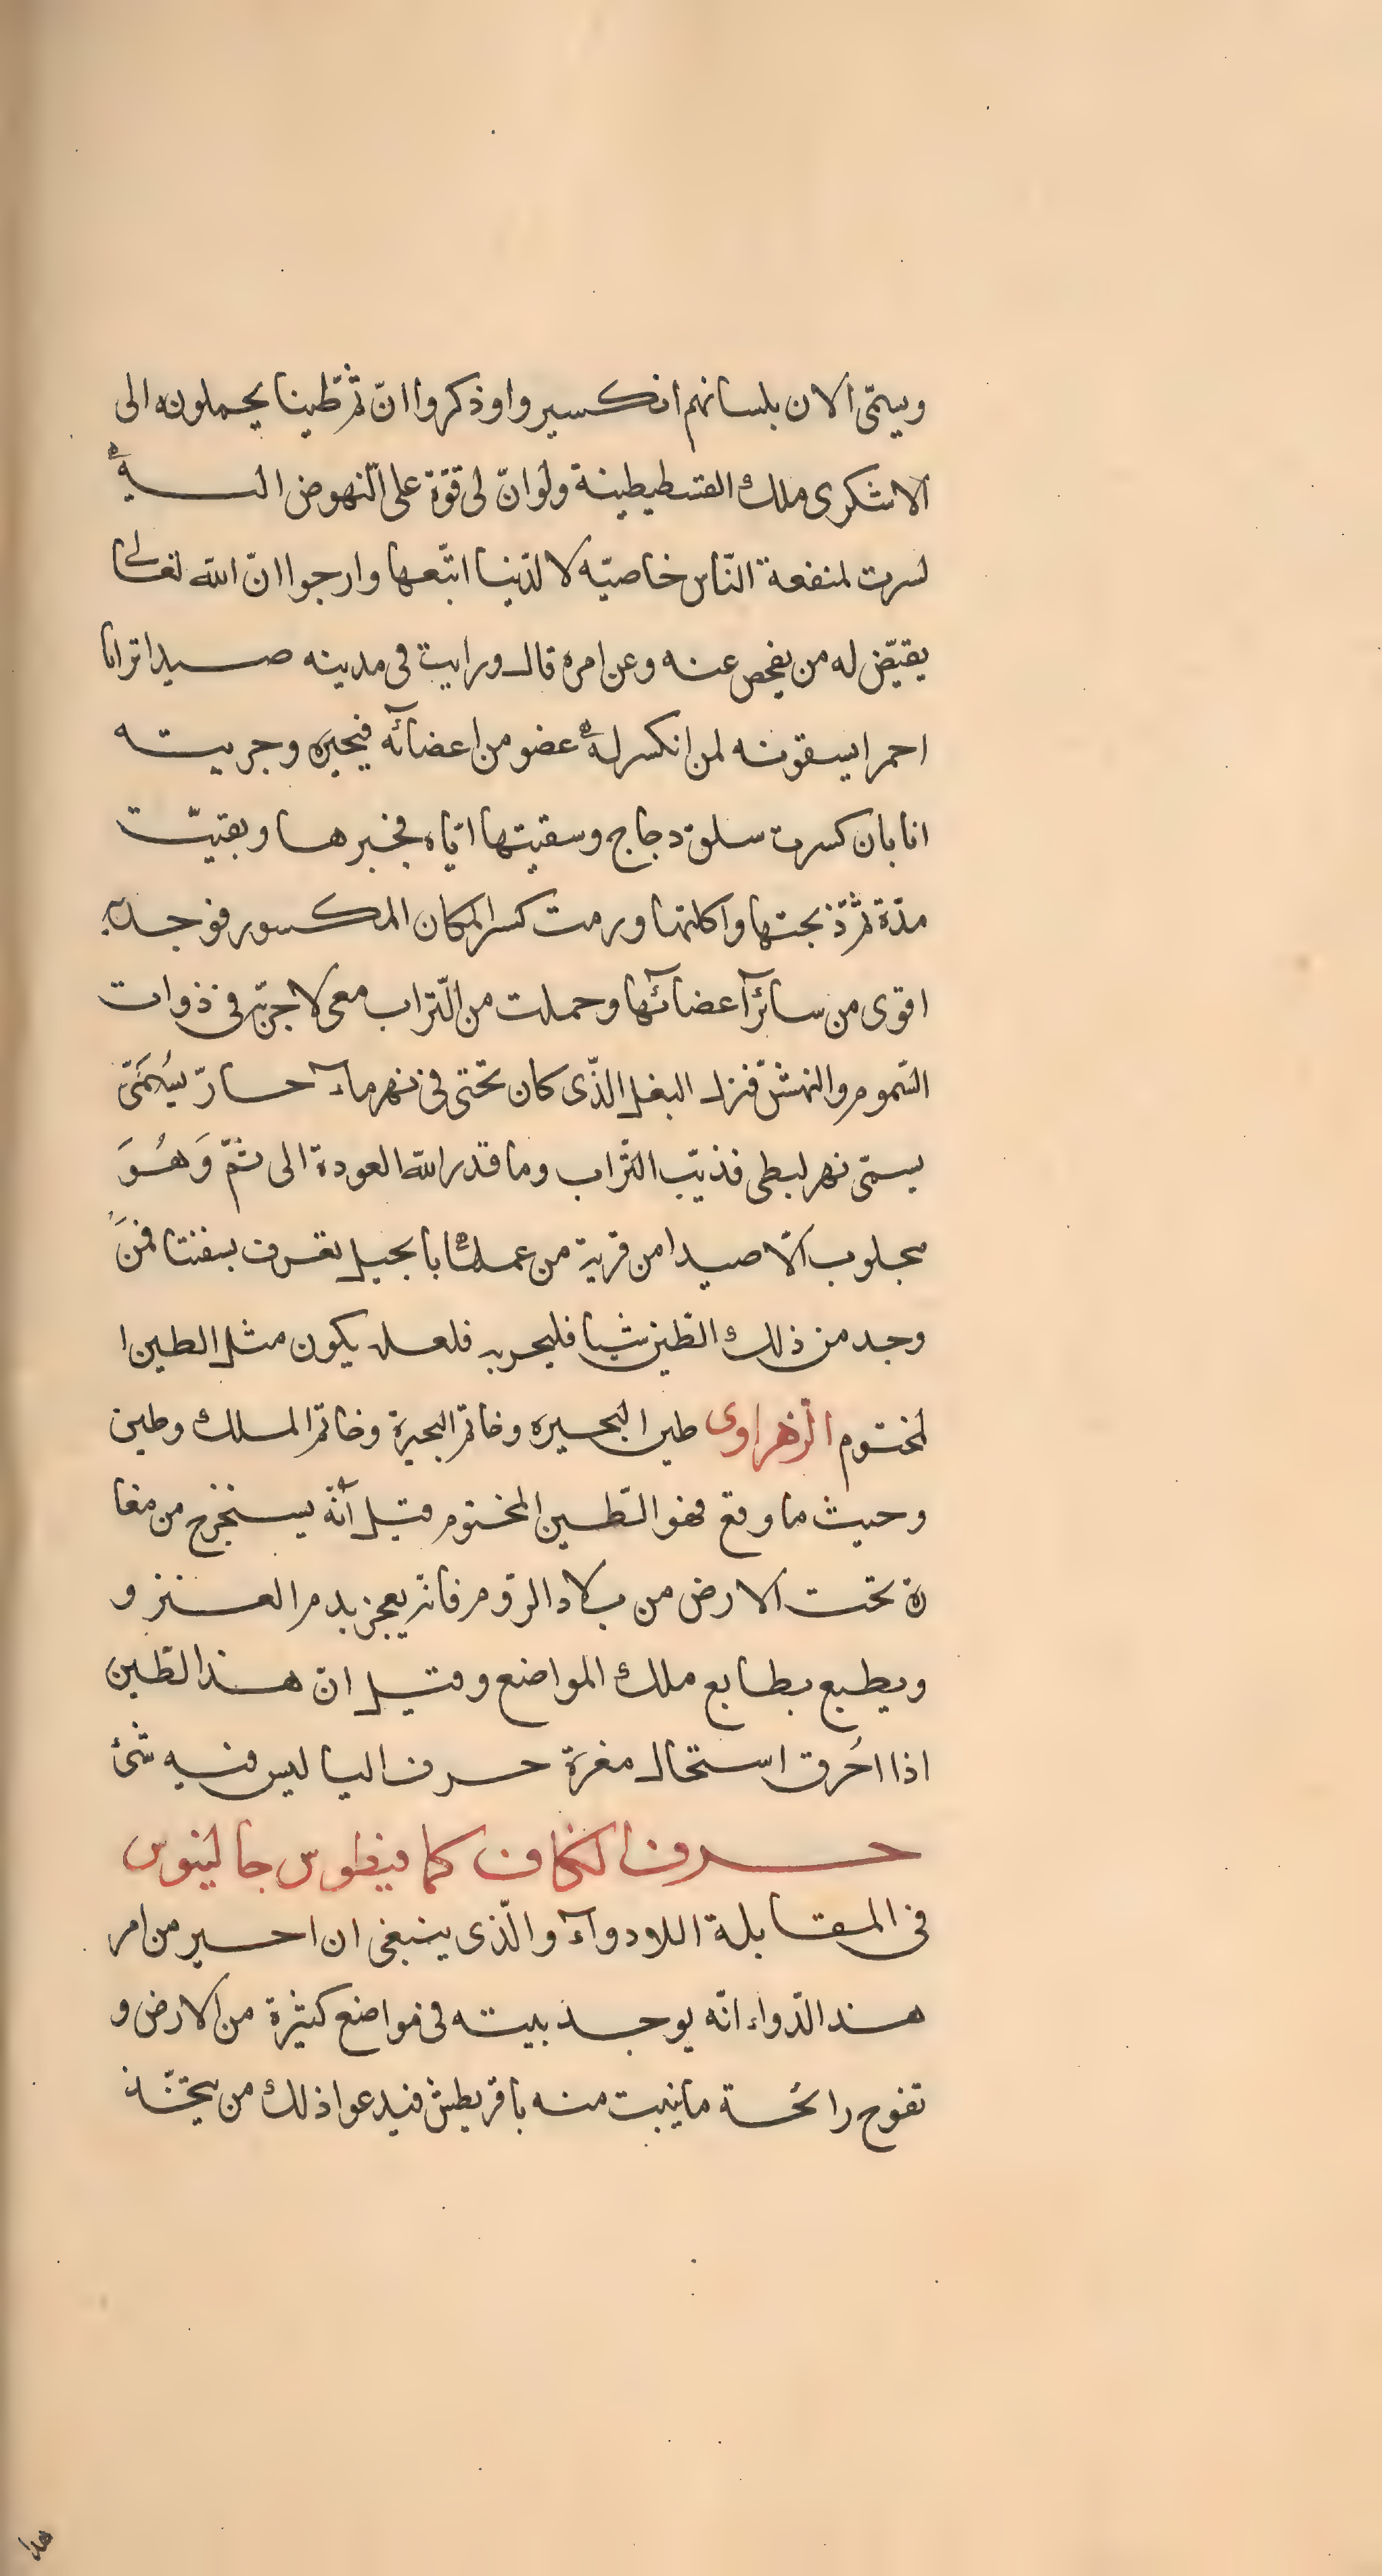 ويسمّى الان بلسانهم انكسيروا وذكروا انّ ثمّ طّينا يحملونه الى
الاشكرى ملك القسطيطينة ولو انّ لى قوّة على النّهوض اليه
لسرت لمنفعة النّاس خاصيّه لا لدّنيا اتّبعها وارجوا انّ الله تعالى
يقيّض له من يفحص عنه وعن امره قال ورايت فى مدينه صيدا ترابا
احمرا يسقونه لمن انكسر له عضو من اعضآئه فيجبره وجربته
انا بان كسرت سلق دجاج وسقيتها ايّاه فجبرها وبقيّت
مدّة ثمّ ذبحتها واكلتها ورمت كسر المكان المكسور فوجدته
اقوى من سائر آعضآئها وحملت من التّراب معى لاجرّبه فى ذوات
السّموم والنهش فنزل البغل الذّى كان تحتى فى نهر مآء حارّ يُسَمَّى
يسمّى نهر لبطى فذيّب التّراب وما قدر الله العودة الى ثمّ وَهُوَ
مجلوب الّا صيدا من قرية من عملها بالجبل تعرف بسفنتا فمَن
وجد من ذلك الطّين شيا فليجربه فلعله يكون مثل الطين ا
لمختوم الزّهراوى طين البحيره وخاتم البحيرة وخاتم الملك وطين
وحيث ما وقع فهو الطّين المختوم قيل آنّه يستخرج من مغا
رة تحت الارض من بلاد الروم فانه يعجن بدم العنز و
ويطبع بطابع ملك المواضع وقيل انّ هذا الطّين
اذا احُرق استحال مغرة حرف اليا ليس فيه شئ
حرف الكاف كمافيطوس جالينوس
فى المقابلة اللادوآء والّذى ينبغى ان احير من امر
هذا الدّواء انّه يوجد بيته فى مواضع كثيرة من الارض و
تفوح رائحة ما ينبت منه باقريطش فيدعوا ذلك من يتخّذ
هذا